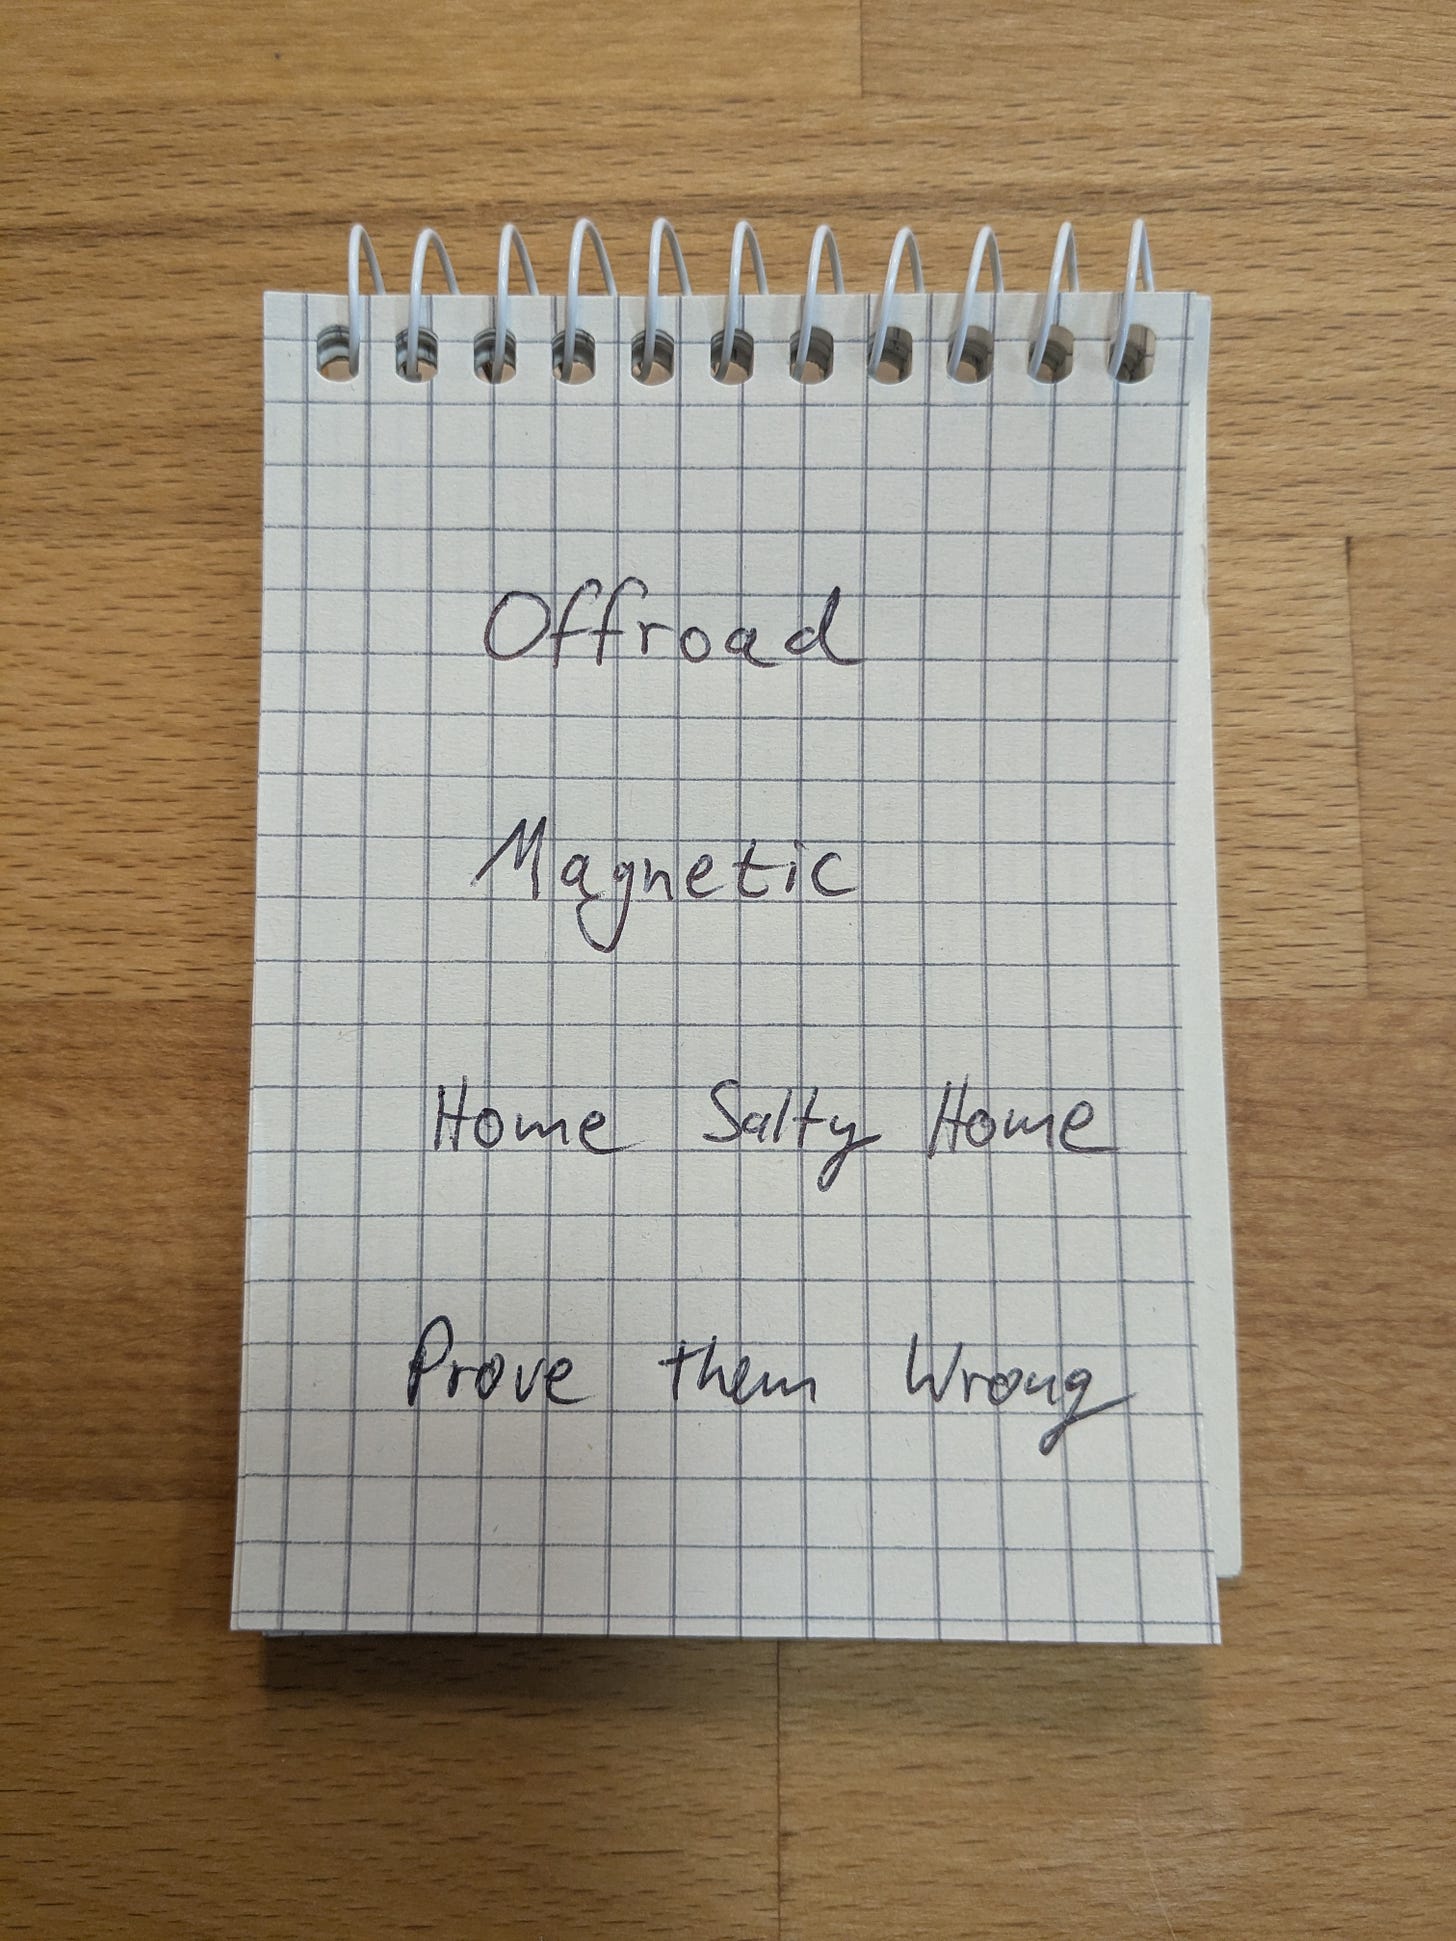 Offroad
Magnetic
Home Salty Home
Prove them Wrong